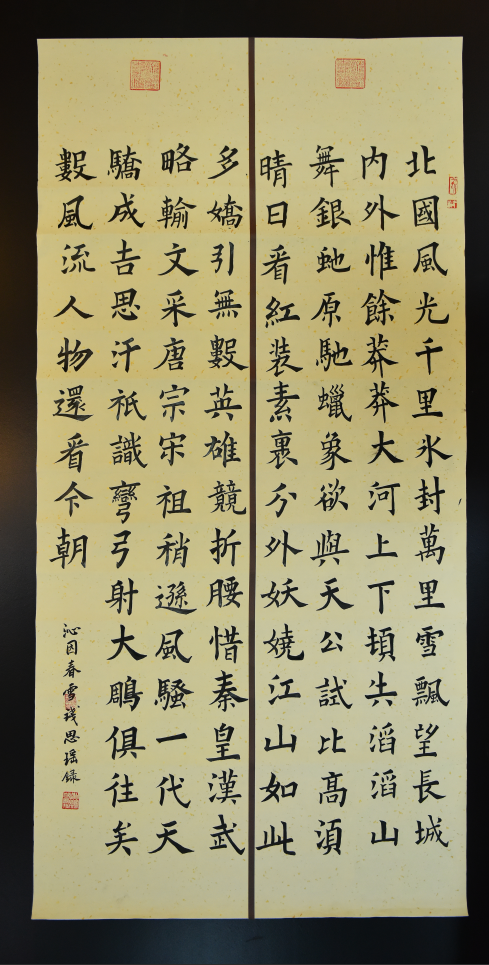 北國風光千里氷封萬里雪飄望長城
内外惟餘莽莽大河上下頓失滔滔山
舞銀虵原馳蠟象欲與天公試比高湏
晴日看紅装素裹分外妖嬈江山如此
多嬌引無數英雄競折腰惜秦皇漢武
略輸文采唐宗宋祖稍遜風騷一代天
驕成吉思汗祇識彎弓射大鵰俱往矣
數風流人物還看今朝
沁园春雪 思瑶録